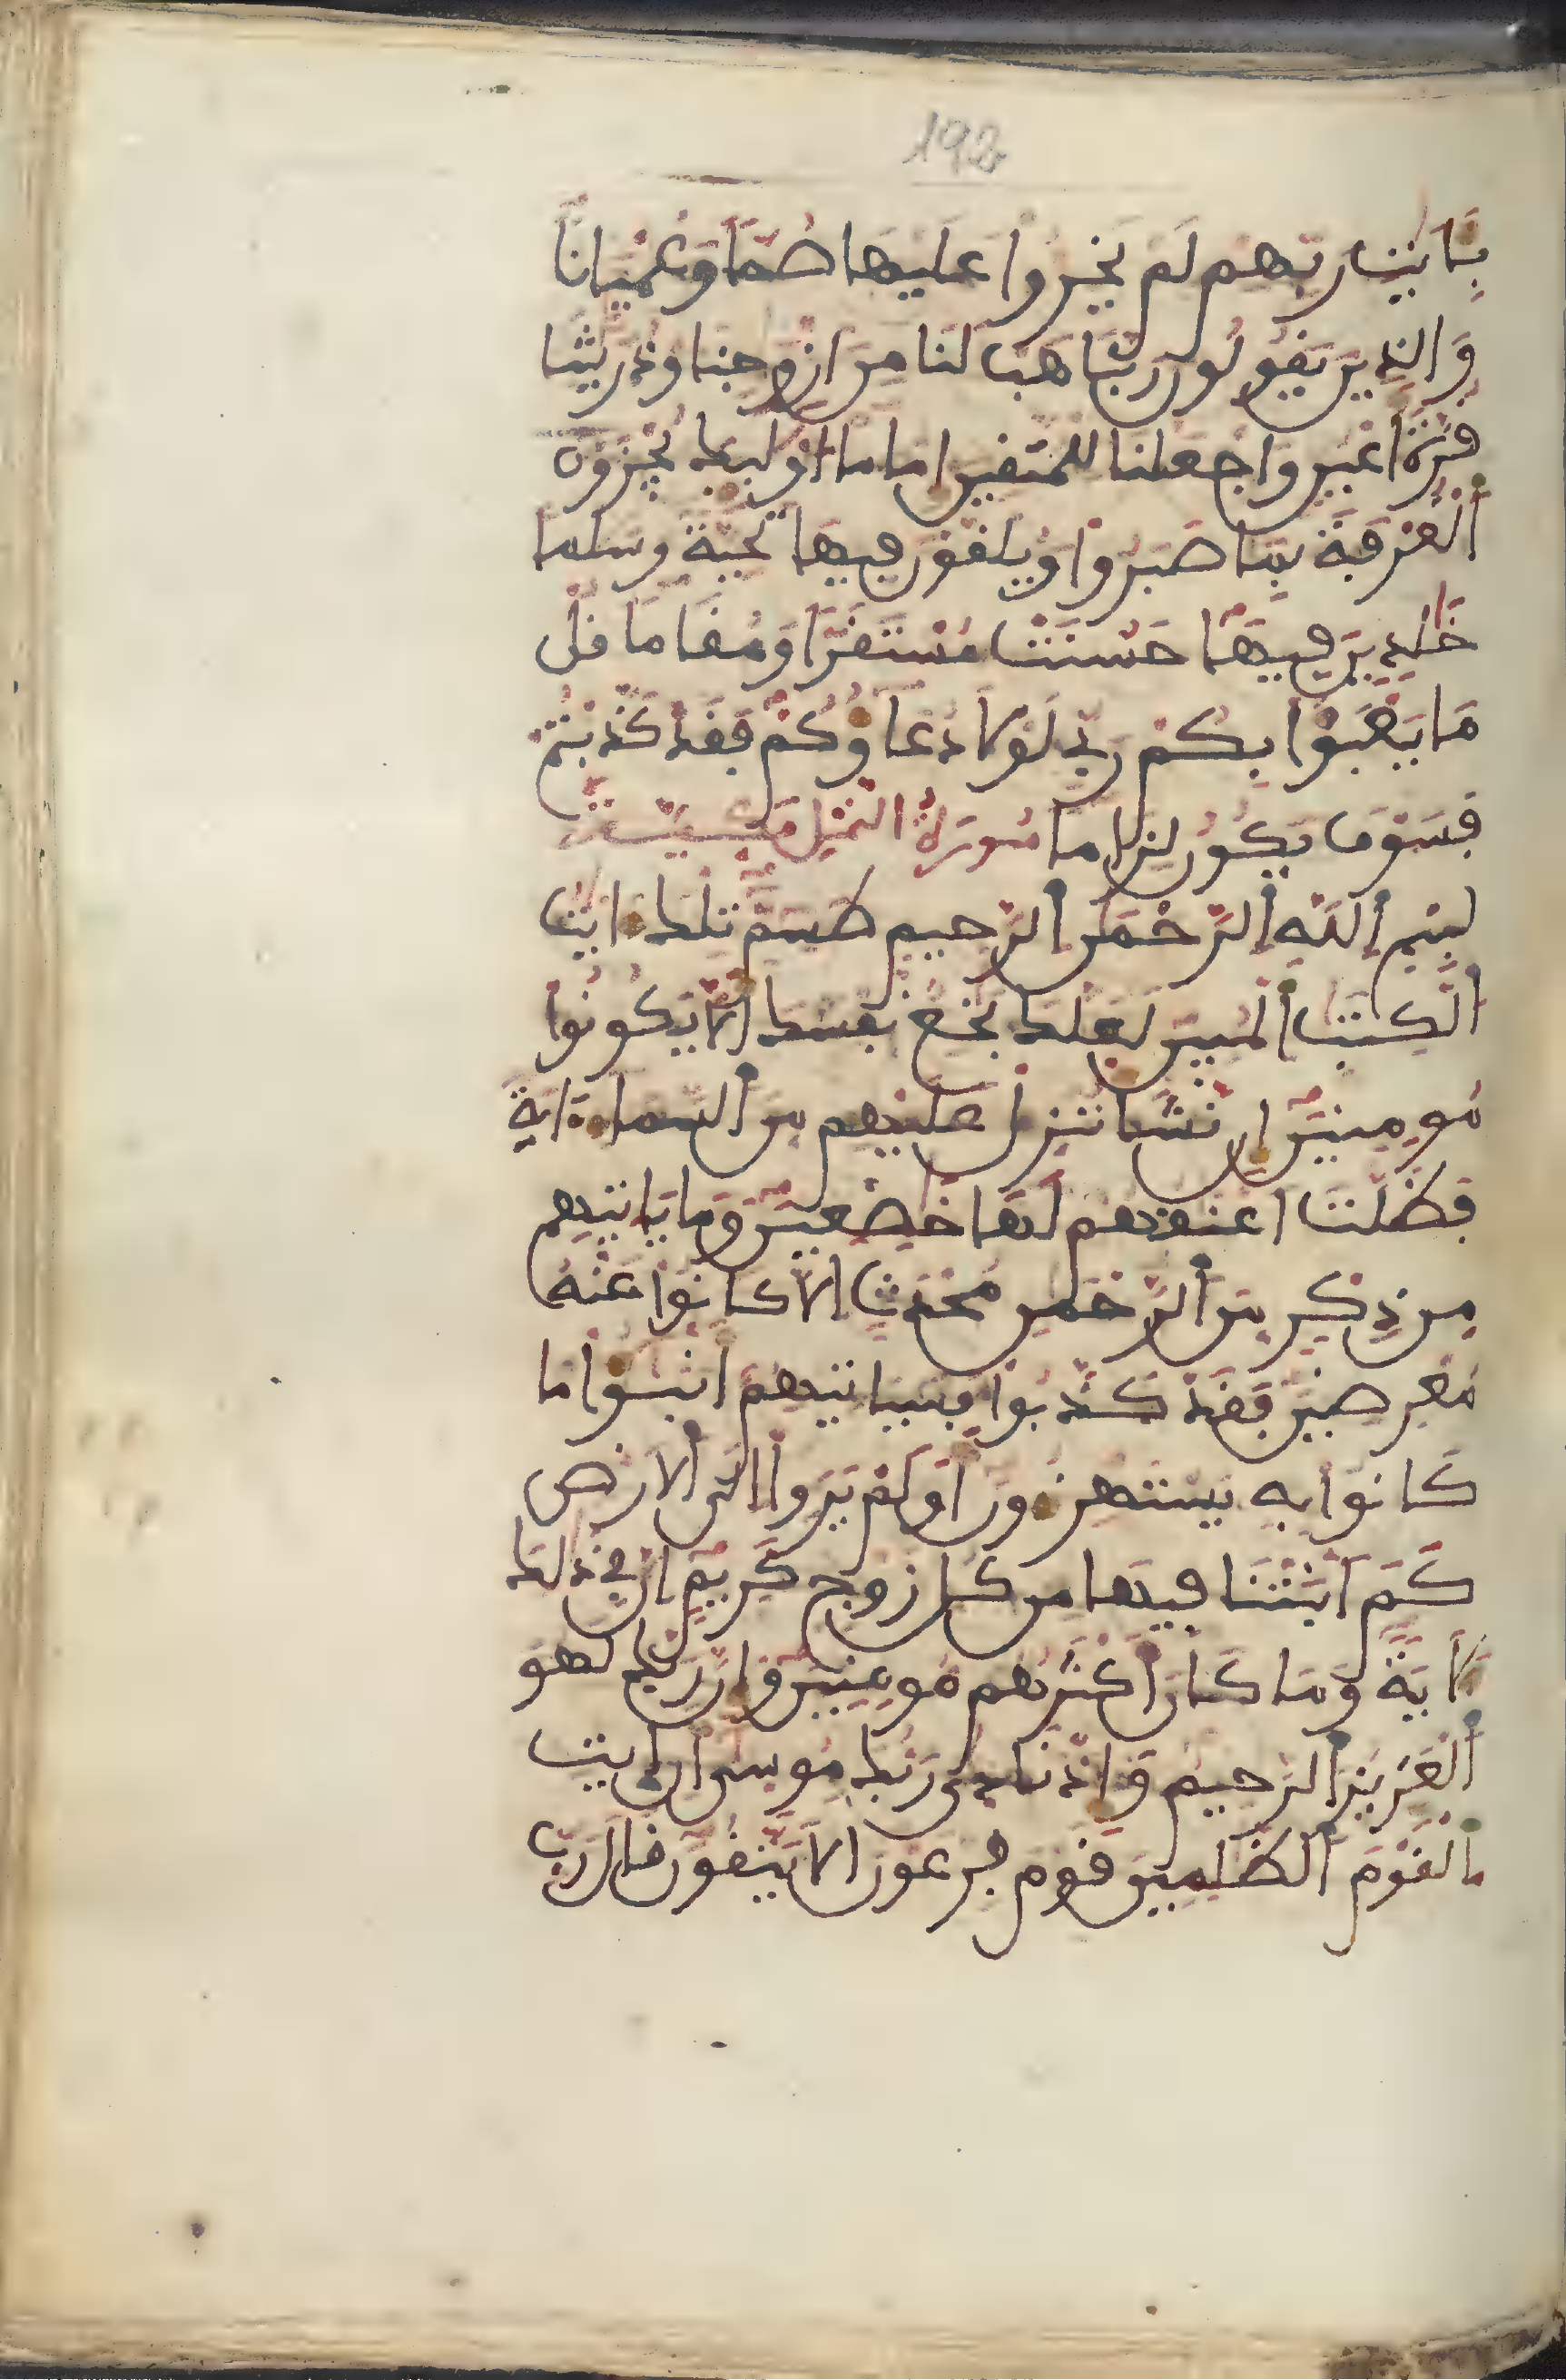 192
بـايت ربهم لم يخروا عليها صما وعميانا
والذين يقولون ربنا هب لنا من ازوجنا وذريتنا
قرة اعين واجعلنا للمتقين اماما اوليك يجزون
الغرفة بما صبروا ويلقون فيها تحية وسلما
خلدين فيها حسنت مستقرا ومقاما قل
ما يعبؤا بكم ربي لولا دعاؤكم فقد كذبتم
فسوف يكون لزاما سورة النمل مكية
بسم الله الرحمن الرحيم طسم تلك ايت
الكتب المبين لعلك بخع نفسك الا يكونوا
مومنين ان نشا ننزل عليهم من السماء اية
فظلت اعنقهم لها خضعين وما ياتيهم
من ذكر من الرحمن محدث الا كانوا عنه
معرضين فقد كذبوا فسياتيهم انبؤا ما
كانوا به يستهزءون اولم يروا الى الارض
كم انبتنا فيها من كل زوج كريم ان في ذلك
لاية وما كان اكثرهم مومنين وان ربك لهو
العزيز الرحيم واذ نادى ربك موسى ان ايت
القوم الظلمين قوم فرعون الا يتقون قال رب